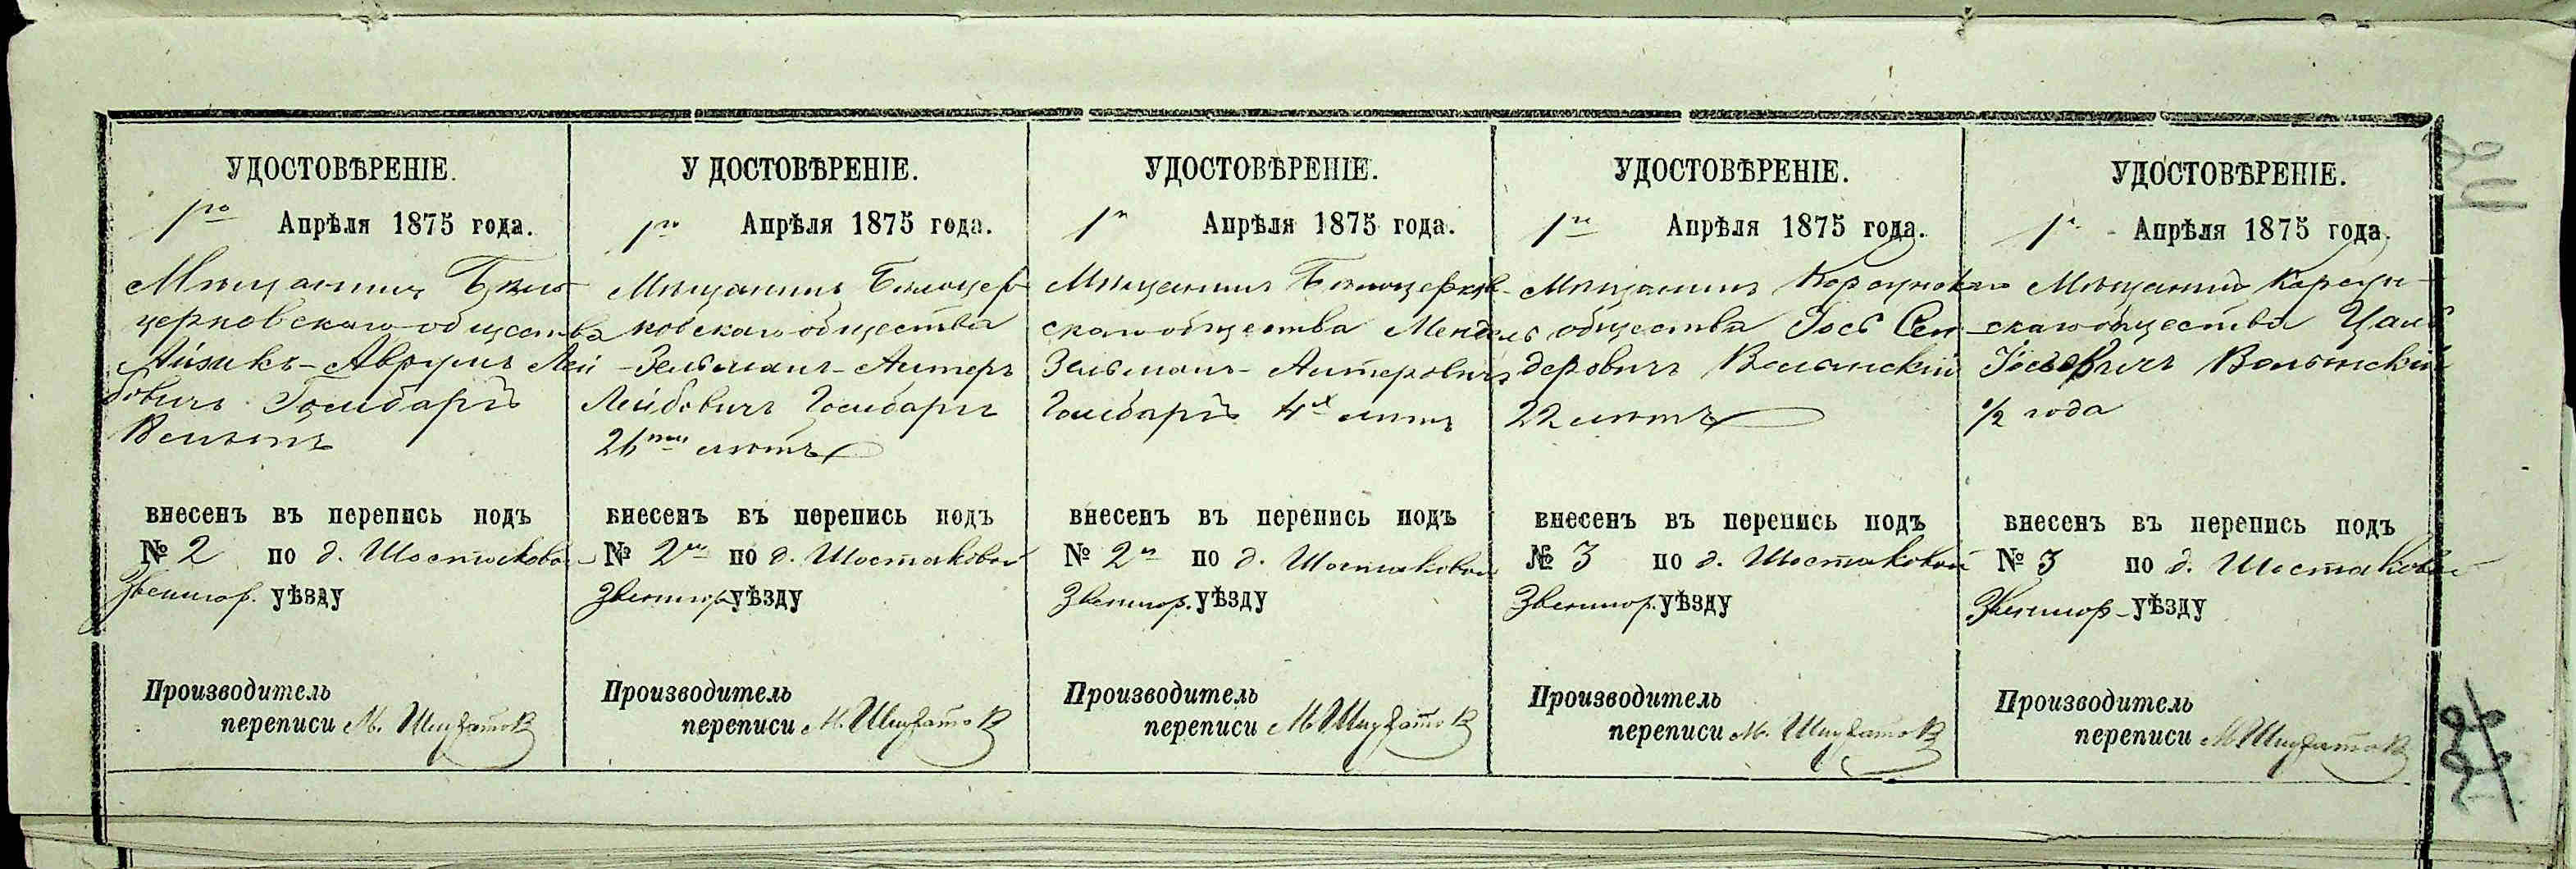 УДОСТОВѢРЕНІЕ.
1го Апрѣля 1875 года.
Мѣщанинъ Бѣло
церковскаго общества
Айзикъ-Аврумъ Лей
бовичъ Голибаргъ
8 лѣтъ
внесенъ въ перепись подъ
№ 2 по д. Шостаковой
Звенигор. уѣзду
Производитель
переписи М.
УДОСТОВѢРЕНІЕ.
1го Апрѣля 1875 года.
Мѣщанинъ Бѣлоцер
ковскаго общества
Зельманъ-Антеръ
Лейбовичъ Голибаргъ
26ти лѣтъ
внесенъ въ перепись подъ
№ 2й по д. Шостаковой
Звенигор. уѣзду
Производитель
переписи М.
УДОСТОВѢРЕНІЕ.
1го Апрѣля 1875 года.
Мѣщанинъ Бѣлоцерков-
скаго общества Мендель
Зельманъ-Антеровичъ
Голибаргъ 4х лѣтъ
внесенъ въ перепись подъ
№ 2й по д. Шостаковой
Звенигор. уѣзду
Производитель
переписи М.
УДОСТОВѢРЕНІЕ.
1го Апрѣля 1875 года.
Мѣщанинъ Корсунскаго
общества Іось Сен
деровичъ Вельскій
22 лѣтъ
внесенъ въ перепись подъ
№ 3 по д. Шостаковой
Звенигор. уѣзду
Производитель
переписи М.
УДОСТОВѢРЕНІЕ.
1го Апрѣля 1875 года.
Мѣщанинъ Корсун-
скаго общества
Іосьовичъ
1/2 года
внесенъ въ перепись подъ
№ 3 по д. Шостаковой
Звенигор- уѣзду
Производитель
переписи М.